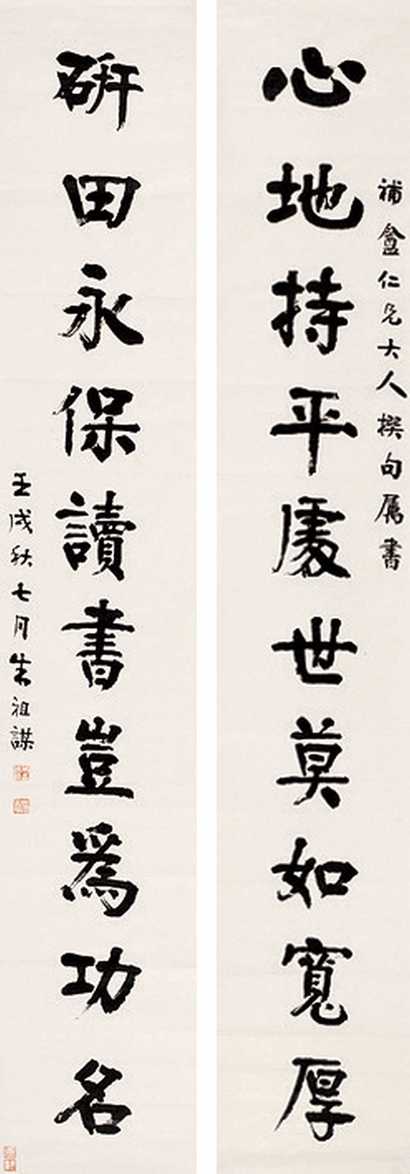 補盦仁兄大人撰句屬書
心地持平處世莫如寬厚
硏田永保讀書豈為功名
壬戌秋七月朱祖謀